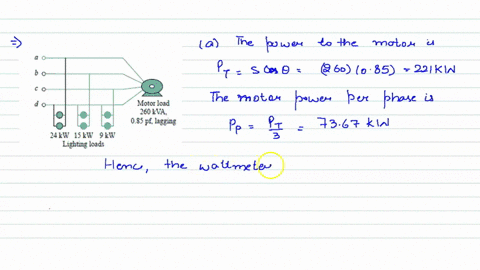 ⇒
a
b
c
d
Motor load
260 kVA,
0.85 pf, lagging
24 kW 15 kW 9 kW
Lighting loads
(a) The power to the motor is
P_T = S cosθ = (260)(0.85) = 221 KW
The motor power per phase is
P_P = P_T/3 = 73.67 KW
Henc, the wattmeter